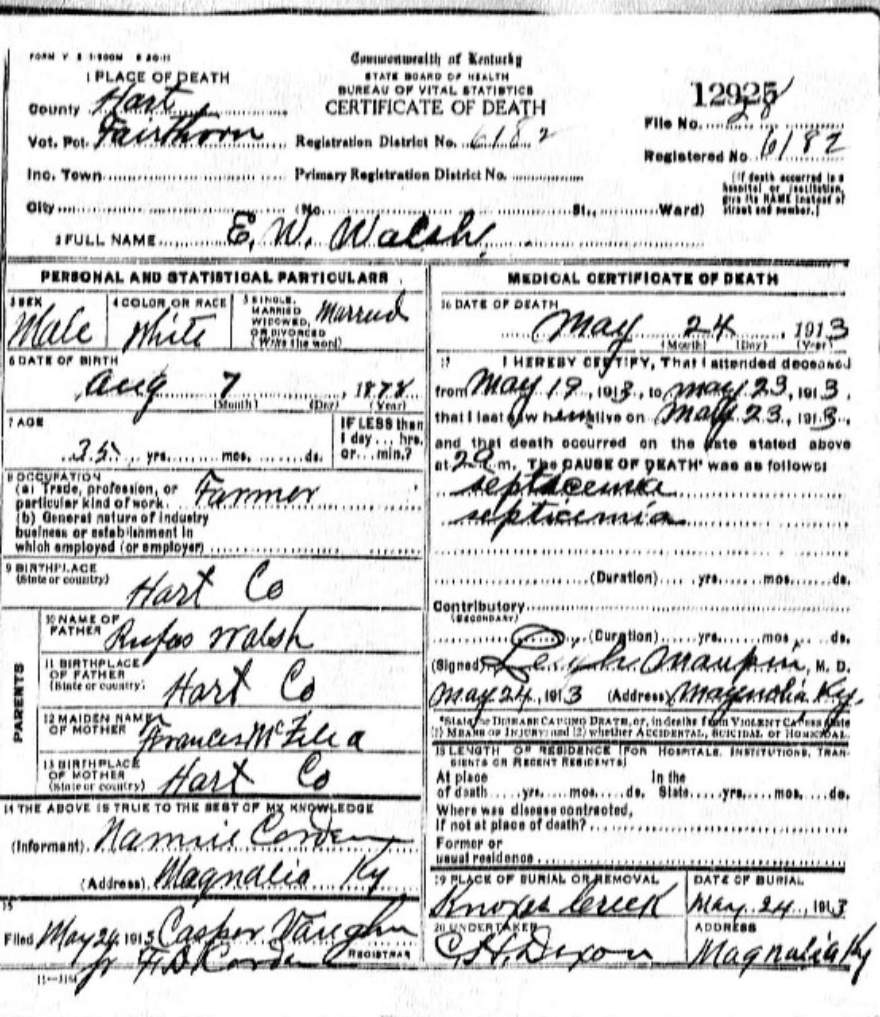 FORM V S
Commonwealth of Kentucky
STATE BOARD OF HEALTH
BUREAU OF VITAL STATISTICS
CERTIFICATE OF DEATH
1 PLACE OF DEATH
County Hart
Vot. Pct. Fairthorn
Registration District No. 6182
Inc. Town
Primary Registration District No.
City (No. St., Ward)
12925
File No. 28
Registered No 6182
(If death occurred in a
hospital or institution,
give its NAME instead of
street and number.)
2 FULL NAME E. W. Walsh
PERSONAL AND STATISTICAL PARTICULARS
3 SEX
Male
4 COLOR OR RACE
White
5 SINGLE,
MARRIED
WIDOWED,
OR DIVORCED
(Write the word)
Married
6 DATE OF BIRTH
Aug 7, 1878
(Month) (Day) (Year)
7 AGE
35 yrs. mos. ds.
IF LESS than
1 day... hrs.
or... min.?
8 OCCUPATION
(a) Trade, profession, or
particular kind of work. Farmer
(b) General nature of industry
business or establishment in
which employed (or employer)
9 BIRTHPLACE
(State or country)
Hart Co
PARENTS
10 NAME OF
FATHER
Rufas Walsh
11 BIRTHPLACE
OF FATHER
(State or country)
Hart Co
12 MAIDEN NAME
OF MOTHER
Frances
13 BIRTHPLACE
OF MOTHER
(State or country)
Hart Co
14 THE ABOVE IS TRUE TO THE BEST OF MY KNOWLEDGE
(Informant) Nannie Corden
(Address) Magnalia Ky
15
Filed May 24 1913 Casper Vaughn
REGISTRAR
MEDICAL CERTIFICATE OF DEATH
16 DATE OF DEATH
May 24, 1913
(Month) (Day) (Year)
17 I HEREBY CERTIFY, That I attended deceased
from May 19, 1913, to May 23, 1913,
that I last saw him alive on May 23, 1913,
and that death occurred on the date stated above
at m. The CAUSE OF DEATH* was as follows:
septacemia
septicemia
(Duration) yrs. mos. ds.
Contributory
(SECONDARY)
(Duration) yrs. mos. ds.
(Signed) Maupin, M. D.
May 24, 1913 (Address) Magnolia Ky.
*State the DISEASE CAUSING DEATH, or, in deaths from VIOLENT CAUSES state
(1) MEANS OF INJURY; and (2) whether ACCIDENTAL, SUICIDAL or HOMICIDAL.
18 LENGTH OF RESIDENCE (FOR HOSPITALS, INSTITUTIONS, TRAN-
SIENTS OR RECENT RESIDENTS)
At place In the
of death yrs. mos. ds. State yrs. mos. ds.
Where was disease contracted,
if not at place of death?
Former or
usual residence
19 PLACE OF BURIAL OR REMOVAL
Knoxes Creek
DATE OF BURIAL
May 24, 1913
20 UNDERTAKER
C. H. Dixon
ADDRESS
Magnalia Ky